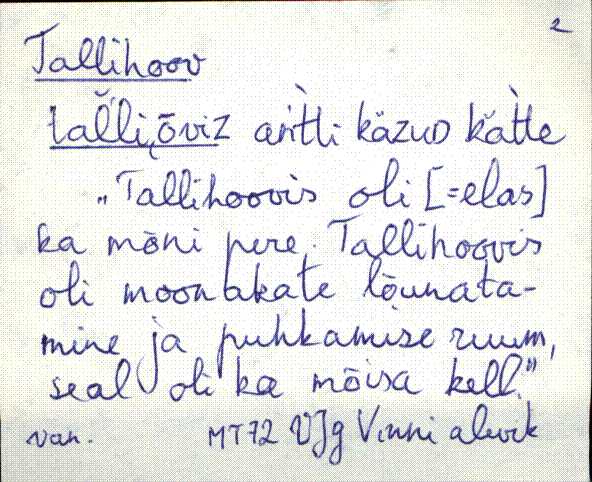 2
Tallihoov
tal̆l'i‿ōviz ań̀t̀ti käzuᴅ kät̀te
"Tallihoovis oli [=elas]
ka mõni pere. Tallihoovis
oli moonakate lõunata-
mine ja puhkamise ruum,
seal oli ka mõisa kell."
van. MT72 VJg Vinni alevik